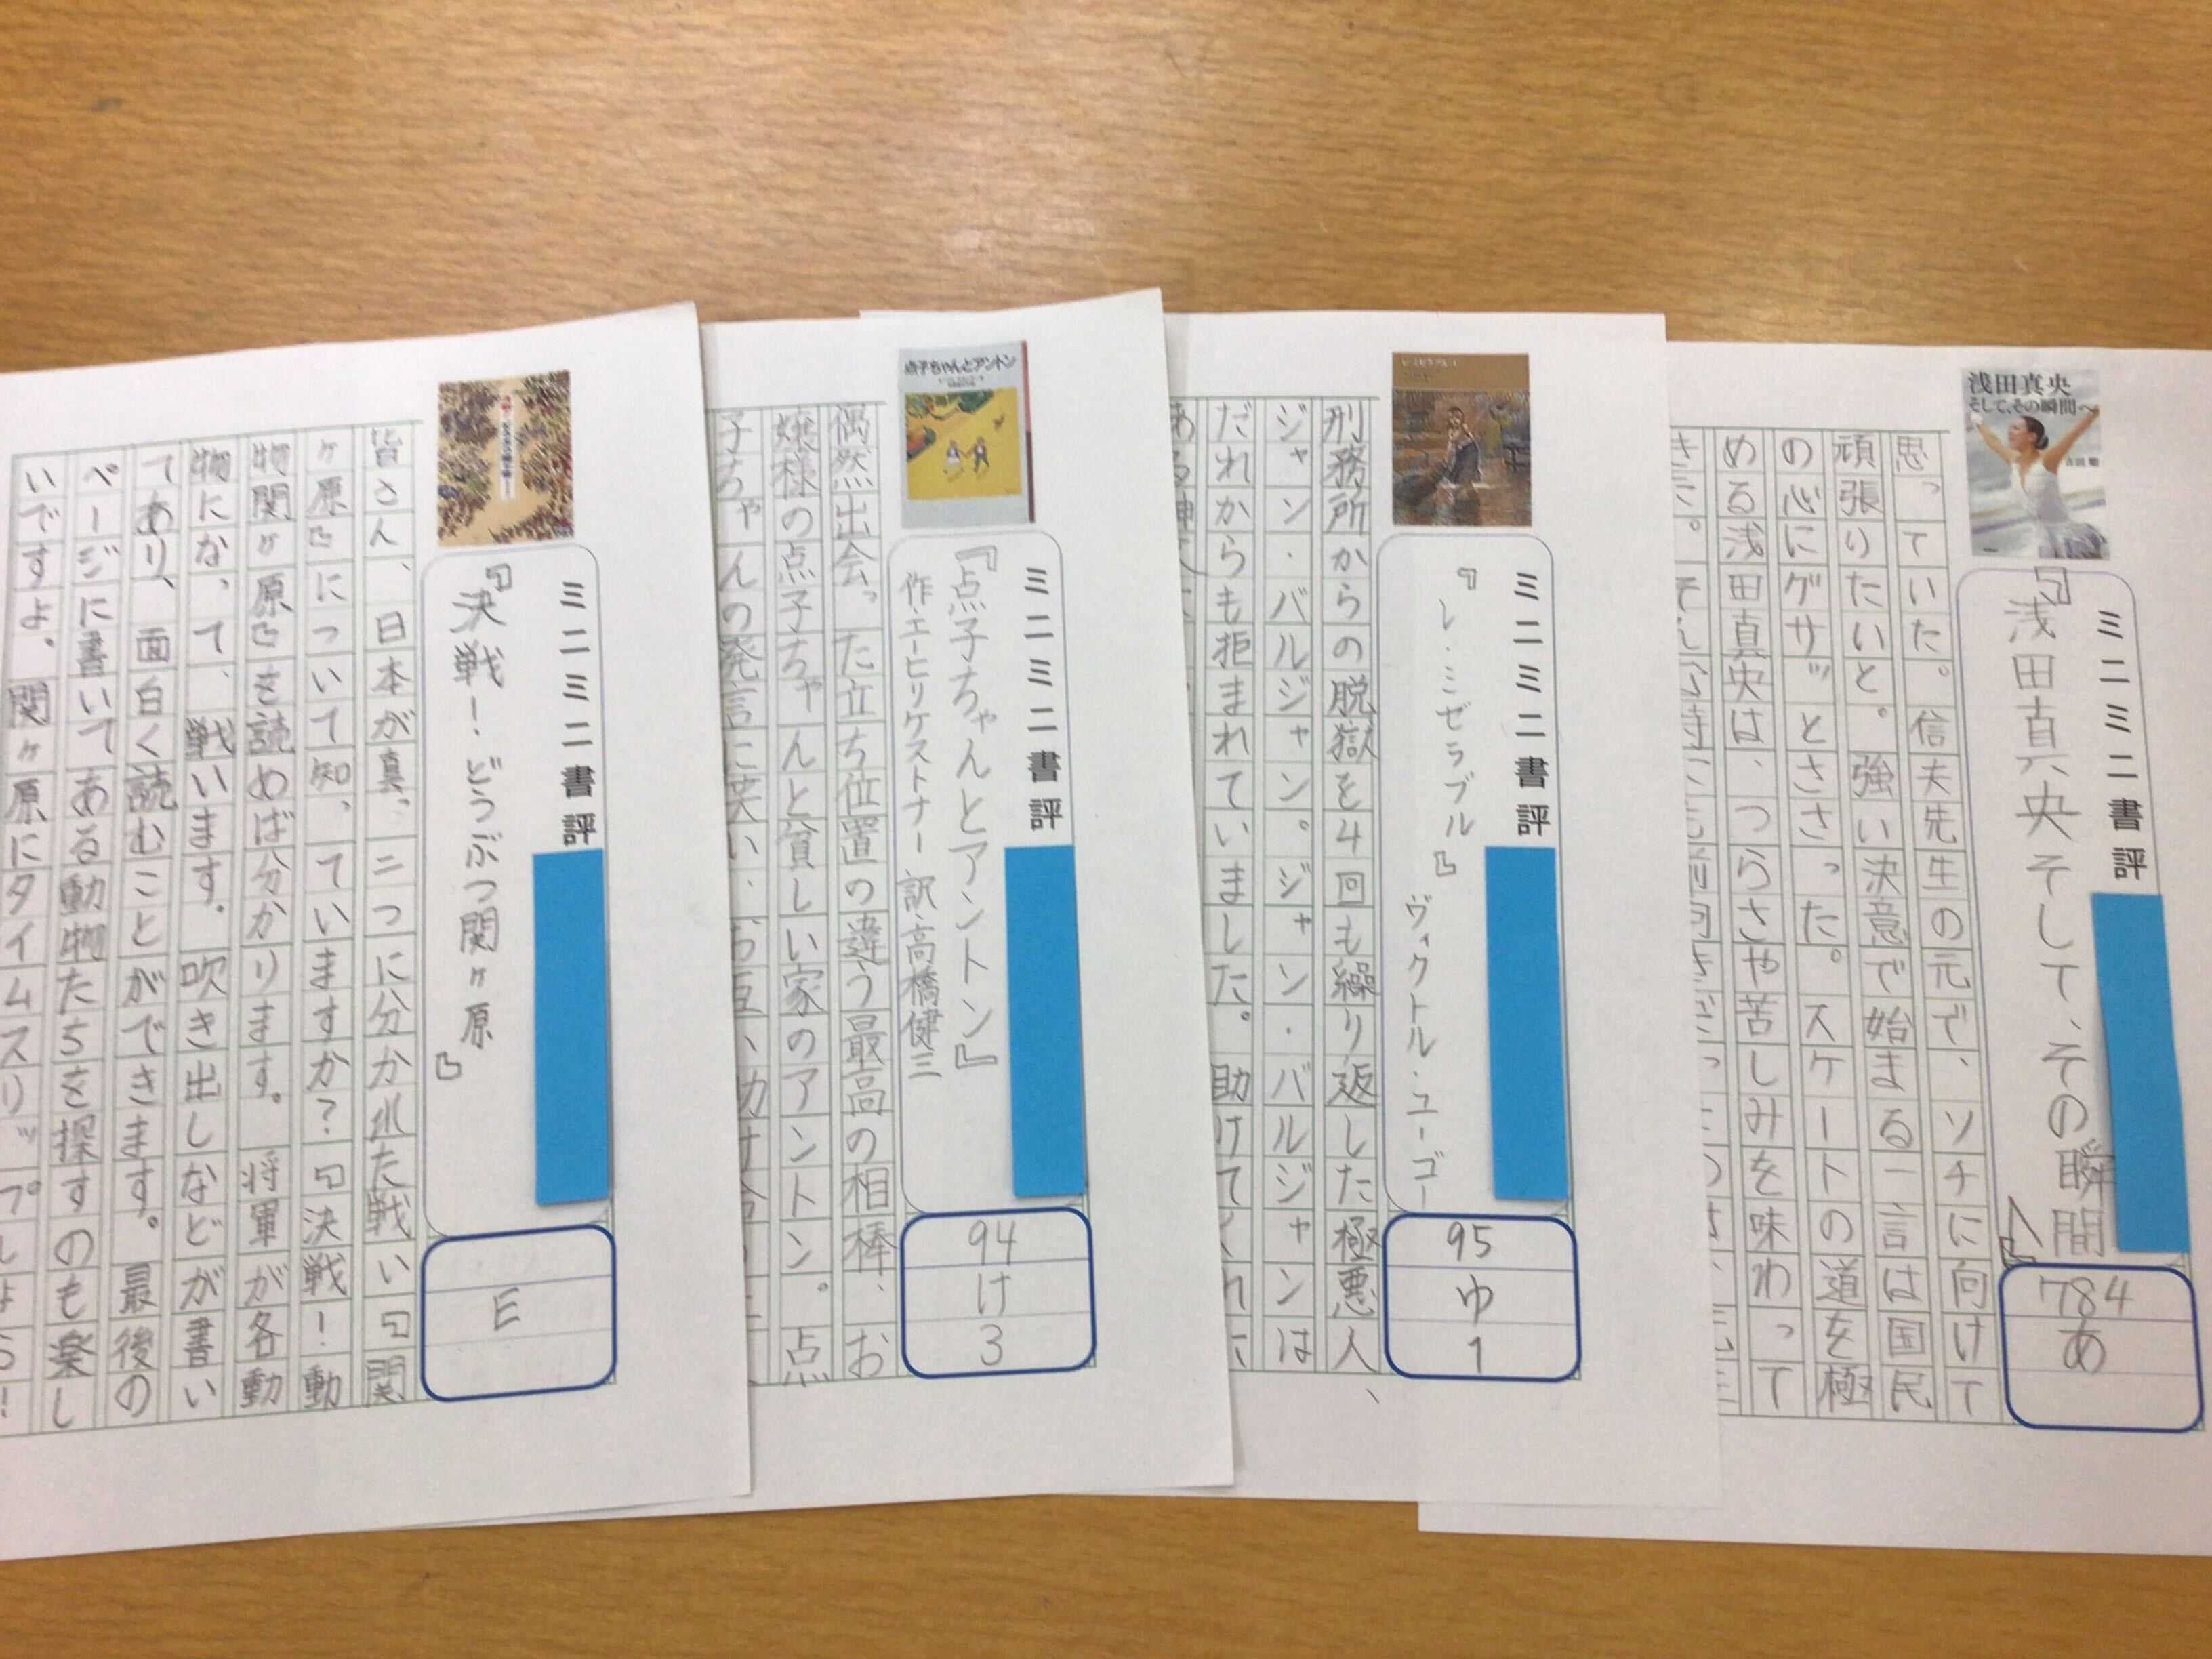 浅田真央
そして、その瞬間へ
ミニミニ書評
『浅田真央そして、その瞬間へ』
784
あ
思っていた。信夫先生の元で、ソチに向けて
頑張りたいと。強い決意で始まる一言は国民
の心にグサッとささった。スケートの道を極
める浅田真央は、つらさや苦しみを味わって
きた。
ミニミニ書評
『レ・ミゼラブル』 ヴィクトル・ユーゴー
95
ゆ
1
刑務所からの脱獄を4回も繰り返した極悪人、
ジャン・バルジャン。ジャン・バルジャンは
だれからも拒まれていました。助けてくれ
点子ちゃんとアントン
ミニミニ書評
『点子ちゃんとアントン』
作・エーヒリケストナー 訳・高橋健三
94
け
3
偶然出会った立ち位置の違う最高の相棒、お
嬢様の点子ちゃんと貧しい家のアントン。点
子ちゃんの発言に笑い、お互い助け合
ミニミニ書評
『決戦!どうぶつ関ヶ原』
E
皆さん、日本が真っ二つに分かれた戦い『関
ヶ原』について知っていますか?『決戦!動
物関ヶ原』を読めば分かります。将軍が各動
物になって、戦います。吹き出しなどが書い
てあり、面白く読むことができます。最後の
ページに書いてある動物たちを探すのも楽し
いですよ。関ヶ原にタイムスリップしましょう!